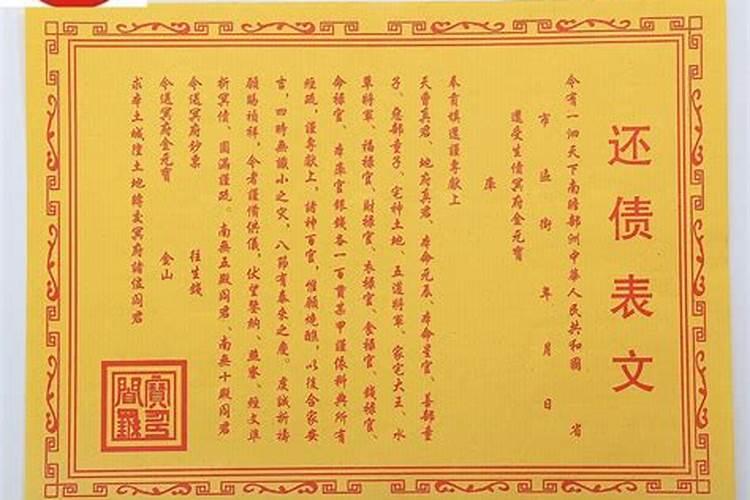 还债表文
今有一泗天下南瞻部洲中華人民共和國 省
市 區 街 年 月 日
還受生債冥府金元寶
庫
奉有填還謹專獻上
天曹真君、地府真君、本命元辰、本命星官、善部童
子、惡部童子、宅神土地、五道將軍、家宅大王、水
草將軍、福祿官、財祿官、衣祿官、食祿官、錢祿官、
命祿官、本庫官銀錢各一百貫某甲謹依科典所有
經疏，謹專獻上，諸神百官，惟願燒醮，以後合家安
吉，四時無識小之災，八節有泰來之慶。虔誠祈禱
願賜禎祥，今者謹備供儀，伏望鑒納、燕寮、經文準
折冥債、圓滿謹疏。南無五殿阎君、南無十殿阎君
令送冥府钞票 往生錢
令送冥府金元寶 金山
求本土城隍土地轉交冥府諸位阎君